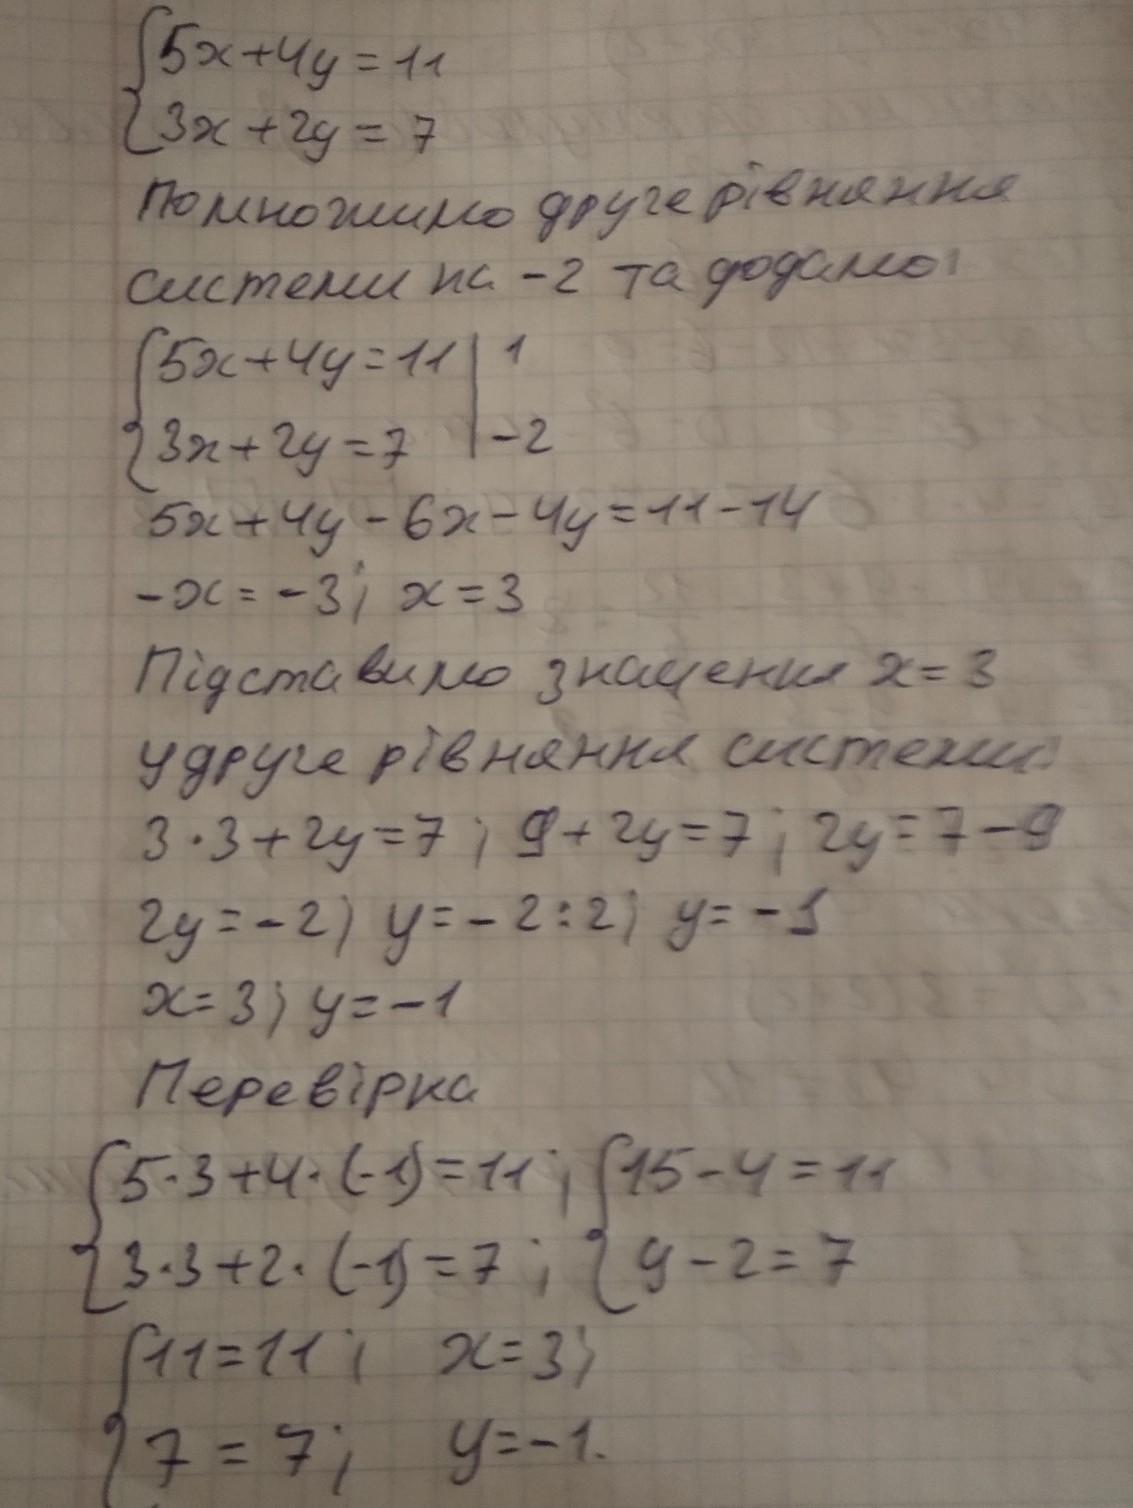 {5x+4y=11
{3x+2y=7
Помножимо друге рівняння
системи на -2 та додамо:
{5x+4y=11 | 1
{3x+2y=7 | -2
5x+4y-6x-4y=11-14
-x=-3; x=3
Підставимо значення x=3
у друге рівняння системи:
3·3+2y=7; 9+2y=7; 2y=7-9
2y=-2; y=-2:2; y=-1
x=3; y=-1
Перевірка
{5·3+4·(-1)=11; {15-4=11
{3·3+2·(-1)=7; {9-2=7
{11=11; x=3;
{7=7; y=-1.